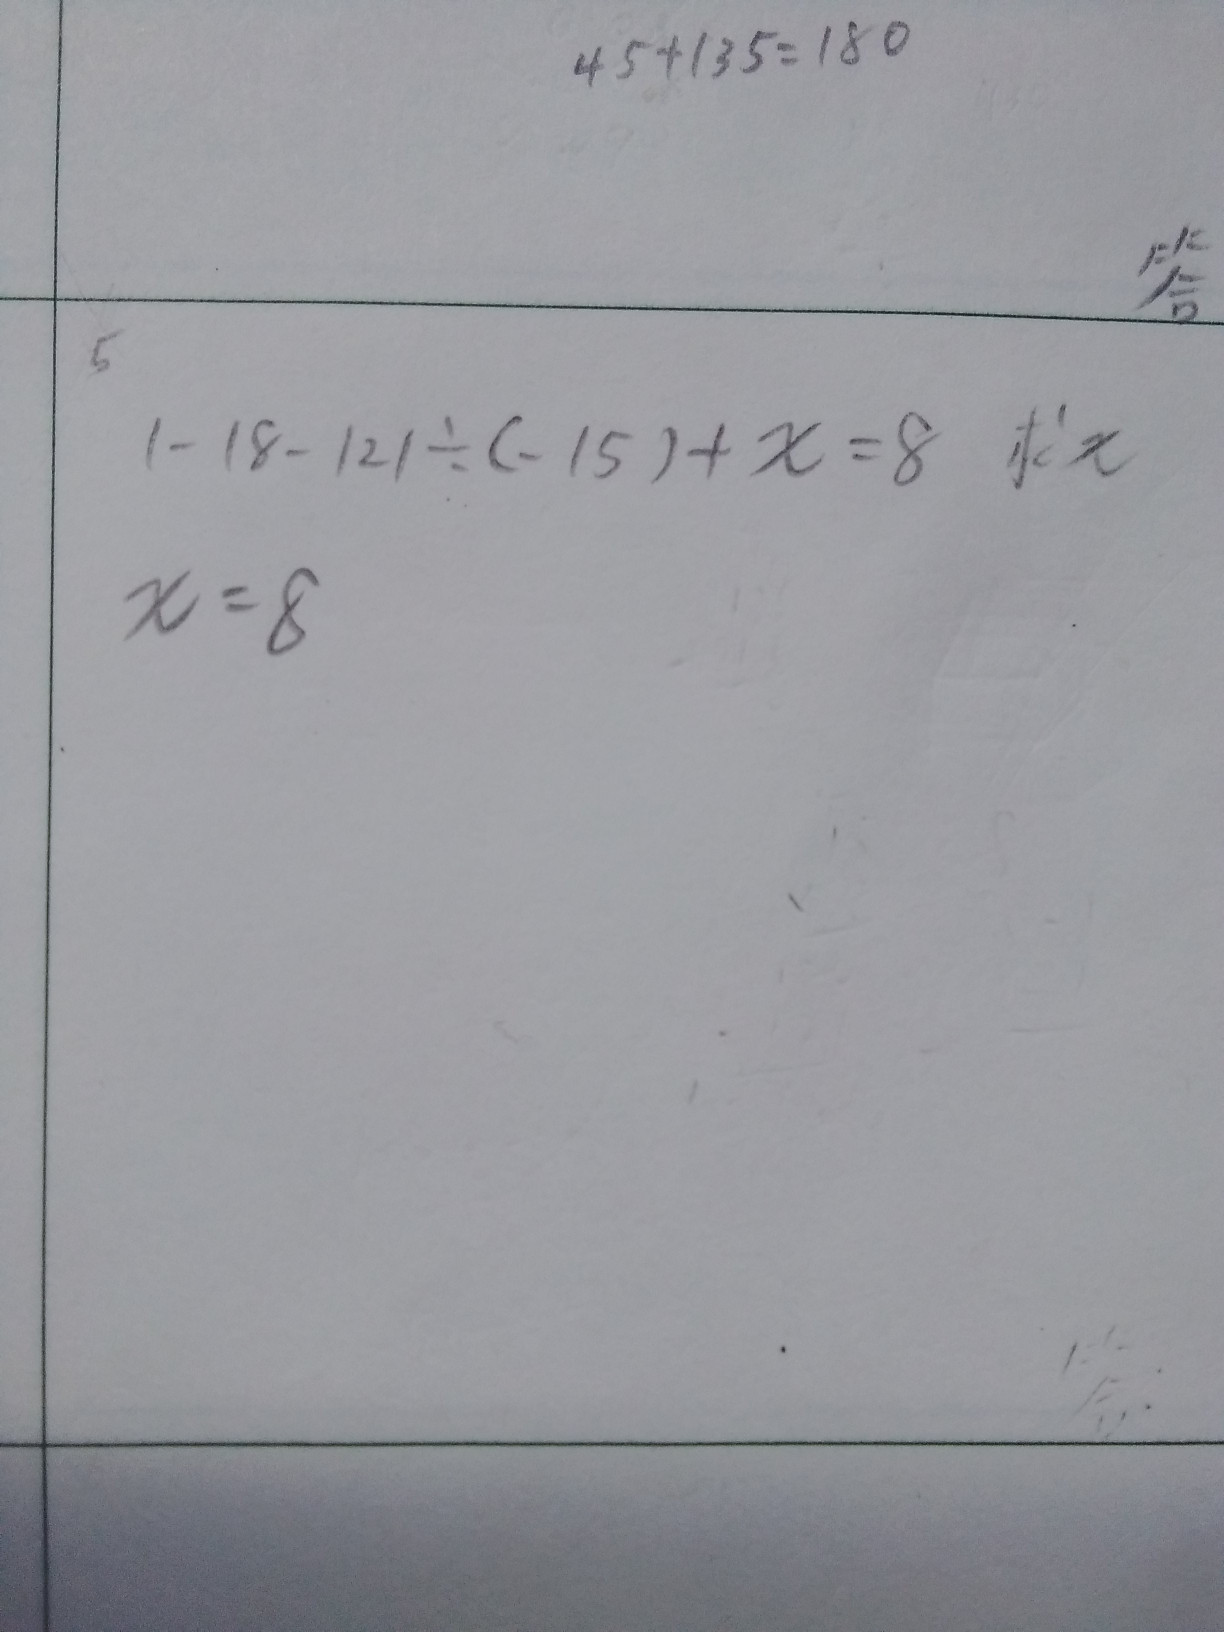 45+135=180
答
5
|-18-12|÷(-15)+x=8 求x
x=8
答